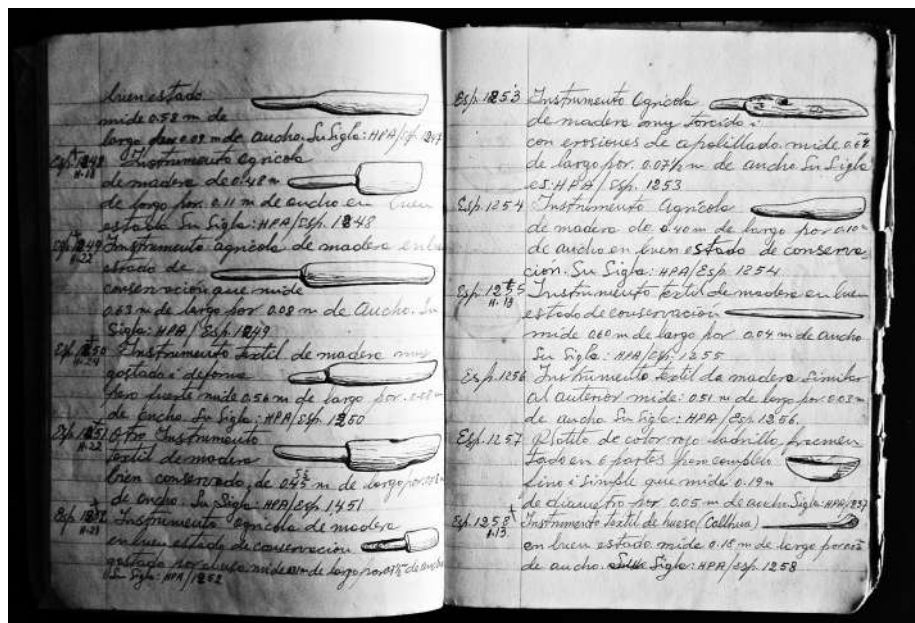 buen estado
mide 0.58 m de
largo 0.09 m de ancho. Su Sigla: HPA/Esp. 1247
Esp. 1248 Instrumento agricola
H-18
de madera de 0.48 m
de largo por 0.11 m de ancho en buen
estado Su Sigla: HPA/Esp. 1248
Esp. 1249 Instrumento agricola de madera en buen
H-22
estado de
conservacion que mide
0.63 m de largo por 0.08 m de ancho. Su
Sigla: HPA / Esp. 1249
Esp. 1250 Instrumento textil de madera muy
H-24
gostado i deforme
pero fuerte mide 0.56 m de largo por
de ancho. Su Sigla: HPA/Esp 1250
Esp. 1251 Otro Instrumento
H-22
textil de madera
bien conservado, de m de largo por
de ancho. Su Sigla: HPA/Esp. 1,451
Esp. 1252 Instrumento agricola de madera
H-21
en buen estado de conservacion
gostado por el uso. mide m de largo por de ancho
Su Sigla: HPA/1252
Esp. 1253 Instrumento Agricola
de madera muy torcido i
con erosiones de apolillado. mide 0.62
de largo por. 0.07½ m de ancho Su Sigla
es: HPA/Esp. 1253
Esp. 1254 Instrumento Agricola
de madera de 0.40 m de largo por 0.10
de ancho en buen estado de conserva
cion. Su Sigla: HPA/Esp. 1254
Esp. 1255 Instrumento textil de madera en buen
H-13
estado de conservacion
mide 0.60 m de largo por 0.04 m de ancho
Su Sigla: HPA/Esp. 1255
Esp. 1256 Instrumento textil de madera similar
al anterior mide: 0.51 m de largo por 0.03 m
de ancho Su Sigla: HPA/Esp. 1256.
Esp. 1257 Platito de color rojo ladrillo fracmen
tado en 6 partes pero completo
fino i simple que mide 0.19 m
de diametro por 0.05 m de ancho Sigla: HPA/1257
Esp. 1258 Instrumento textil de hueso (Callhua)
H-13.
en buen estado. mide 0.18 m de largo por
de ancho. Sigla: HPA/Esp. 1258